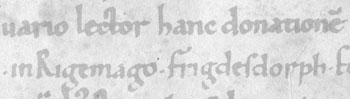 uario lector hanc donationē
· in Rigemago · fringdesdorph ·